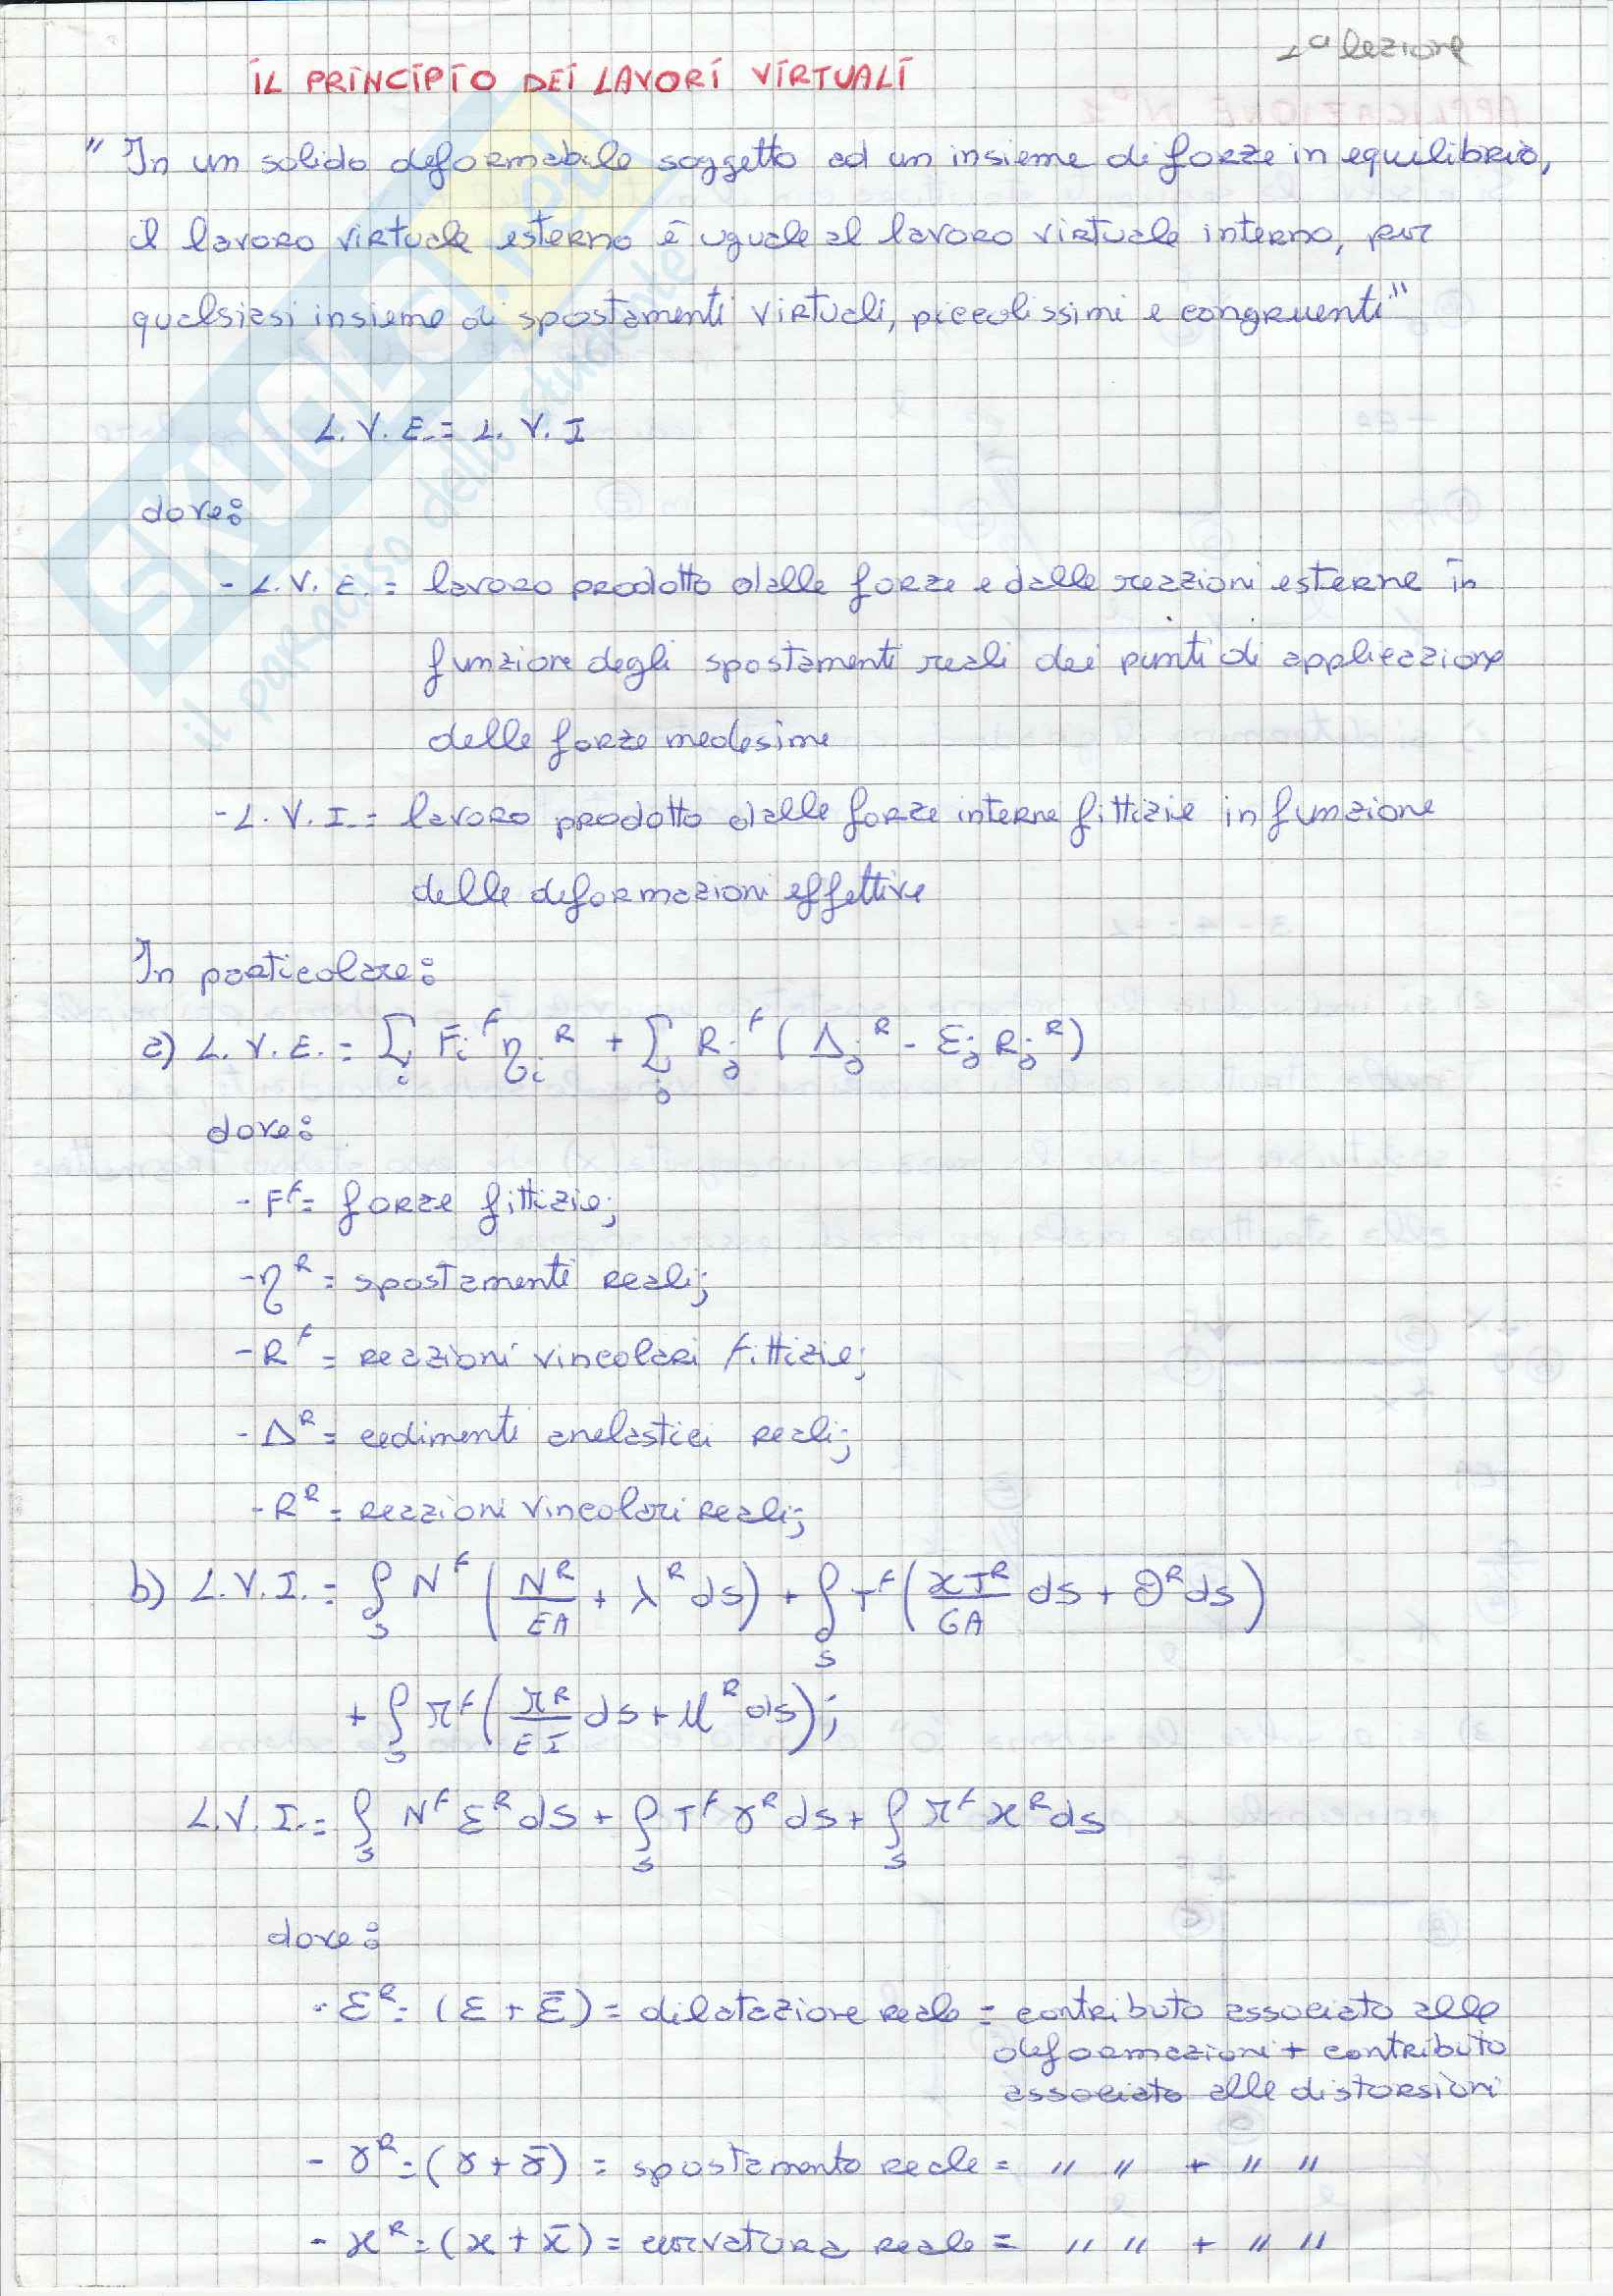 1ª lezione
IL PRINCIPIO DEI LAVORI VIRTUALI
" In un solido deformabile soggetto ad un insieme di forze in equilibrio,
il lavoro virtuale esterno è uguale al lavoro virtuale interno, per
qualsiasi insieme di spostamenti virtuali, piccolissimi e congruenti"
L.V.E. = L.V.I
dove:
- L.V.E. = lavoro prodotto dalle forze e dalle reazioni esterne in
funzione degli spostamenti reali dei punti di applicazione
delle forze medesime
- L.V.I. = lavoro prodotto dalle forze interne fittizie in funzione
delle deformazioni effettive
In particolare:
a) L.V.E. = ∑i Fi^F ηi^R + ∑j Rj^F (Δj^R - Ɛj Rj^R)
dove:
- F^F = forze fittizie;
- η^R = spostamenti reali;
- R^F = reazioni vincolari fittizie;
- Δ^R = cedimenti anelastici reali;
- R^R = reazioni vincolari reali;
b) L.V.I. = ∫s N^F (N^R/EA + λ^R ds) + ∫s T^F (χT^R/GA ds + Θ^R ds)
+ ∫s M^F (M^R/EI ds + μ^R ds);
L.V.I. = ∫s N^F Ɛ^R ds + ∫s T^F γ^R ds + ∫s M^F χ^R ds
dove:
- Ɛ^R = (Ɛ + Ɛ̄) = dilatazione reale = contributo associato alle
deformazioni + contributo
associato alle distorsioni
- γ^R = (γ + γ̄) = spostamento reale = " " + " "
- χ^R = (χ + χ̄) = curvatura reale = " " + " "
SKUOLA.net
il paradiso dello studente